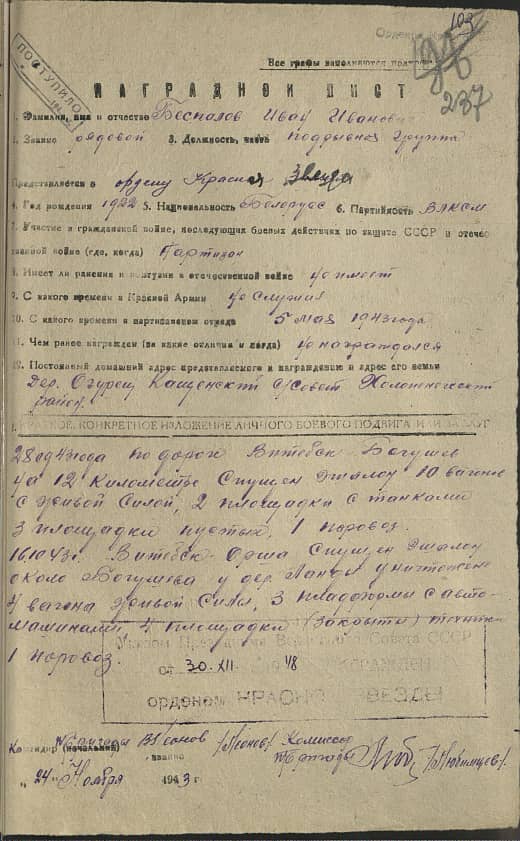 ПОСТУПИЛО
103
237
Все графы заполняются
НАГРАДНОЙ ЛИСТ
1. Фамилия, имя и отчество Беспалов Иван Иванович
2. Звание рядовой 3. Должность, часть подрывная группа
Представляется к ордену Красная Звезда
4. Год рождения 1922 5. Национальность Белорус 6. Партийность ВЛКСМ
7. Участие в гражданской войне, последующих боевых действиях по защите СССР и отечест-
венной войне (где, когда) Партизан
8. Имеет ли ранения и контузии в отечественной войне не имеет
9. С какого времени в Красной Армии не служил
10. С какого времени в партизанском отряде 5 мая 1943 года
11. Чем ранее награжден (за какие отличия и когда) не награждался
12. Постоянный домашний адрес представляемого к награждению и адрес его семьи
Дер. с/совет
район.
I. КРАТКОЕ, КОНКРЕТНОЕ ИЗЛОЖЕНИЕ ЛИЧНОГО БОЕВОГО ПОДВИГА ИЛИ ЗАСЛУГ
43 года по дороге Витебск Богушев
на 12 километре спущен эшалон 10 вагонов
с живой силой, 2 площадки с танками
3 площадки пустых, 1 поровоз.
16.10.43г. Витебск-Орша спущен эшалон
около Богушева у дер. уничтожено
4 вагона живой силы, 3 с авто-
машинами, 4 площадки (закрыты)
1 поровоз.
Указом Президиума Верховного Совета СССР
от 30.XII. 1948 НАГРАЖДЕН
орденом КРАСНОЙ ЗВЕЗДЫ
Командир (начальник) бригады /Леонов/ Комиссар
звание бригады
"24" Ноября 1943г.